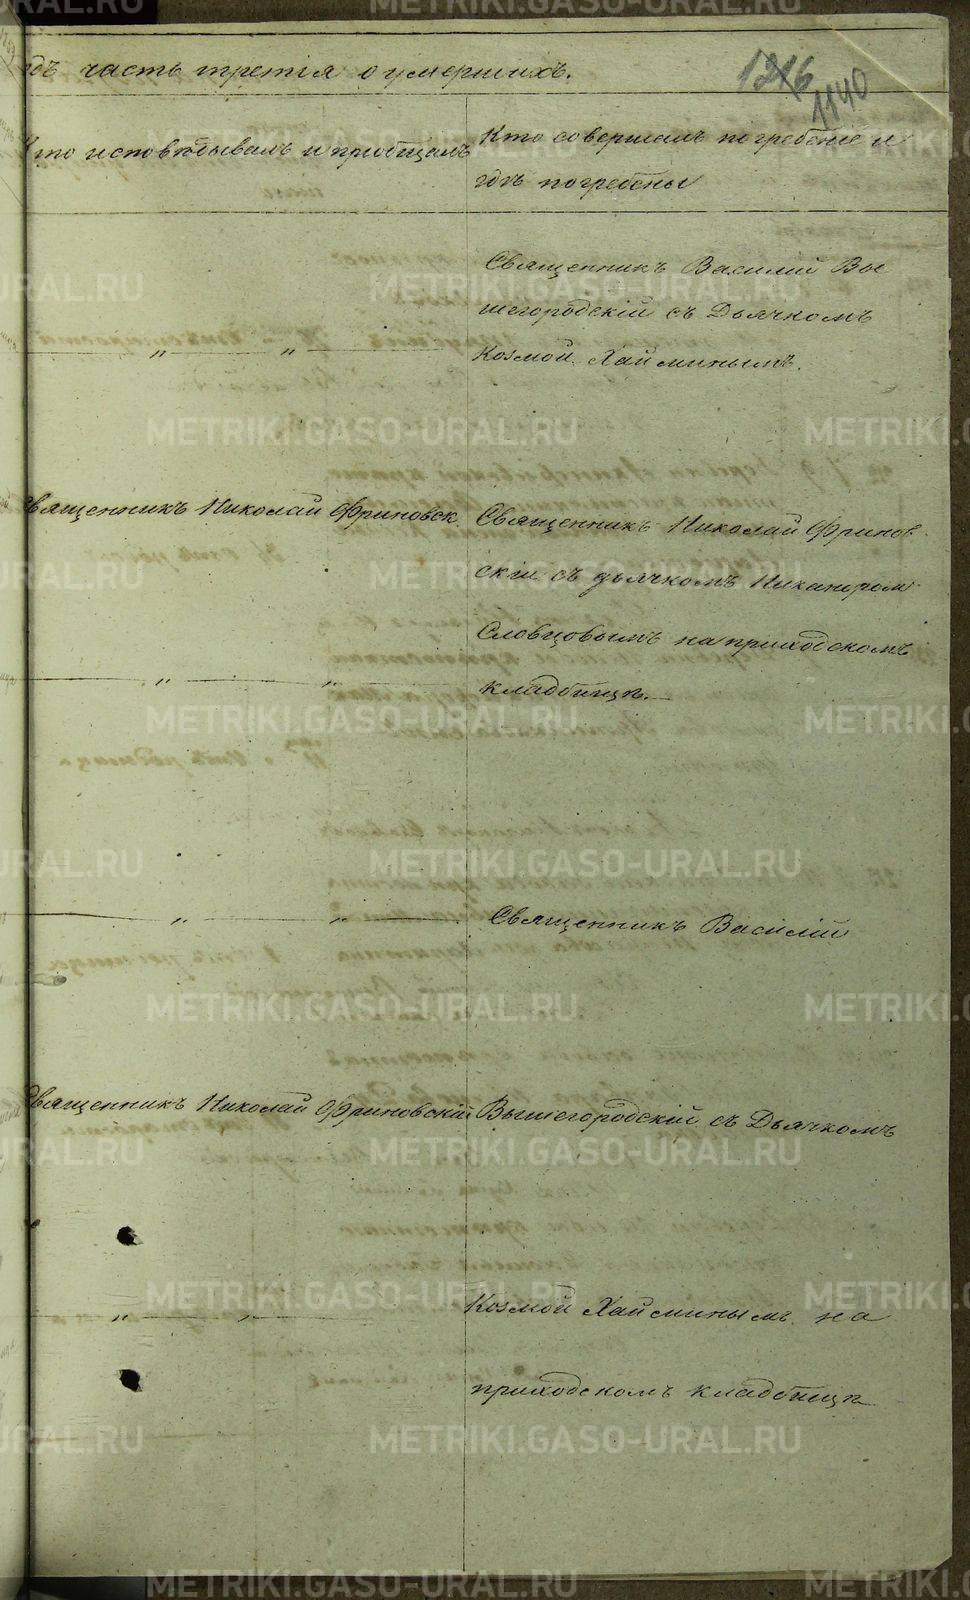 METRIKI.GASO-URAL.RU
часть третія о умершихъ.
1216
1140
Кто исповѣдывалъ и пріобщалъ
Кто совершалъ погребеніе и
гдѣ погребены
Священникъ Василій Вы
шегородскій съ Дьячкомъ
Козмой Хайминымъ.
" "
Священникъ Николай Фриновск.
Священникъ Николай Финов
скій съ дьячкомъ Никаноромъ
Словцовымъ на приходскомъ
кладбищѣ.
" "
" "
Священникъ Василій
Священникъ Николай Фриновскій
Вышегородскій съ Дьячкомъ
" "
Козмой Хайминымъ на
приходскомъ кладбищѣ